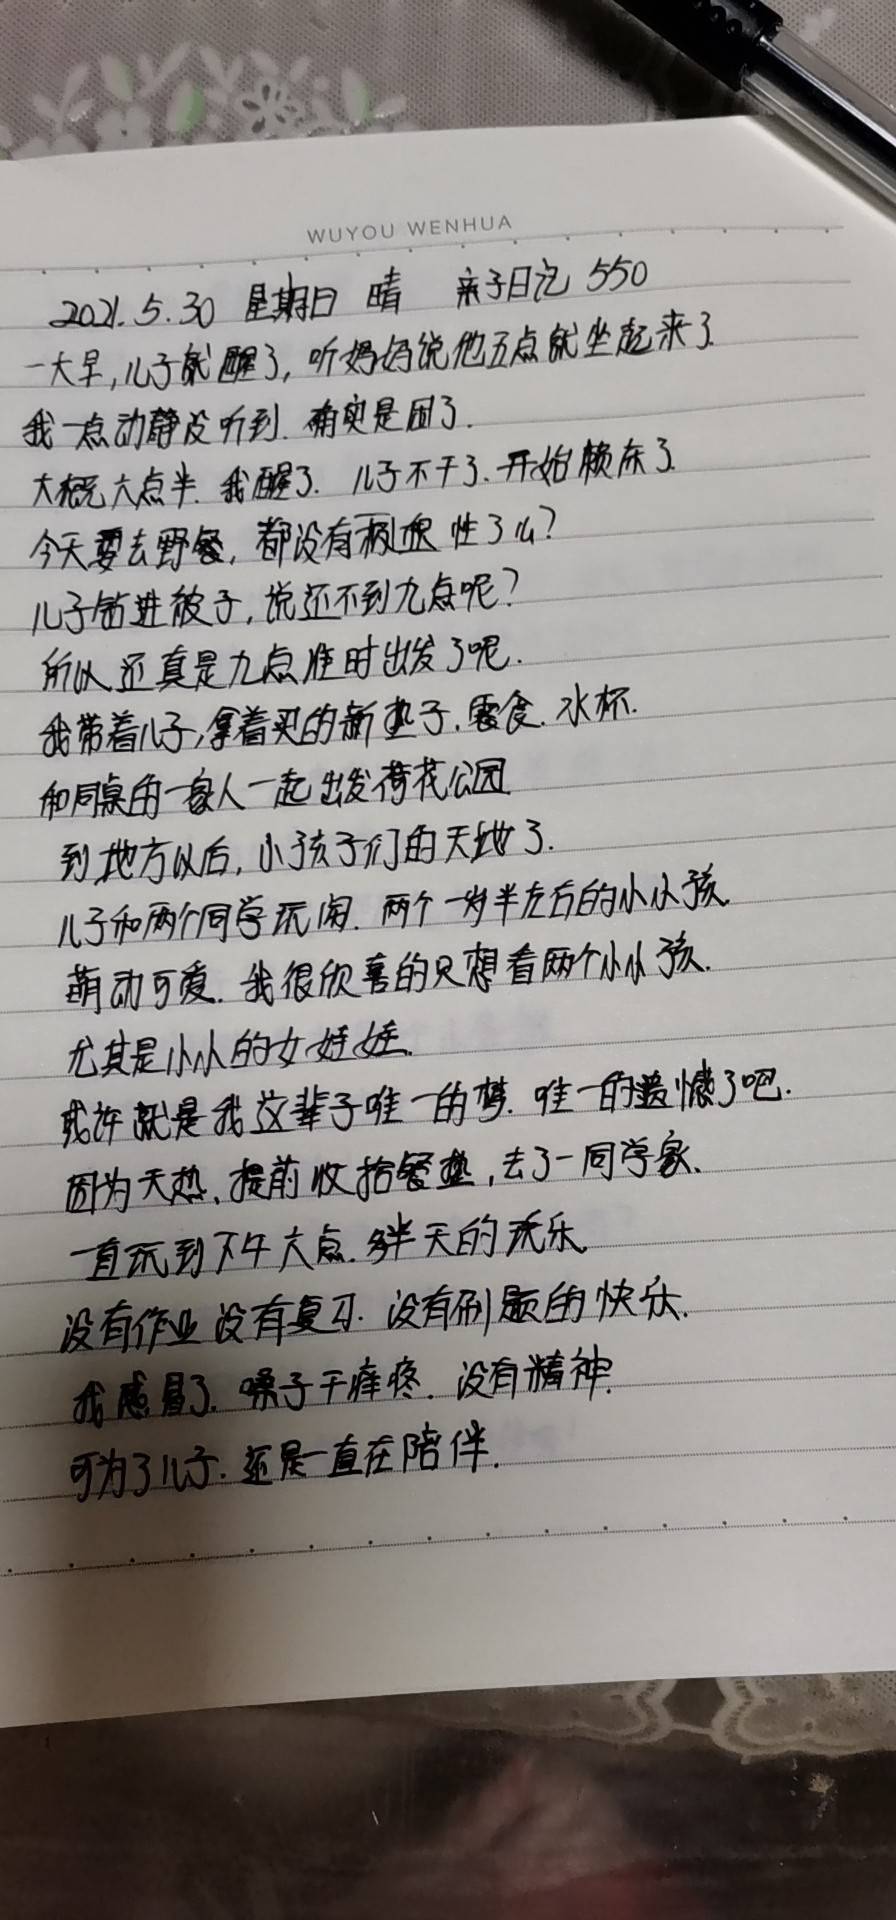 WUYOU WENHUA
2021.5.30 星期日 晴 亲子日记 550
一大早,儿子就醒了,听妈妈说他五点就坐起来了.
我一点动静没听到.确实是困了.
大概六点半.我醒了.儿子不干了.开始赖床了.
今天要去野餐,都没有积极性了么?
儿子钻进被子,说还不到九点呢?
所以还真是九点准时出发了呢.
我带着儿子,拿着买的新垫子.零食.水杯.
和同桌的一家人一起出发荷花公园
到地方以后,小孩子们的天地了.
儿子和两个同学玩闹.两个一岁半左右的小小孩.
萌动可爱.我很欣喜的只想看两个小小孩.
尤其是小小的女娃娃.
或许就是我这辈子唯一的梦.唯一的遗憾了吧.
因为天热.提前收拾餐垫,去了一同学家.
一直玩到下午六点.多半天的玩乐.
没有作业没有复习.没有刷题的快乐.
我感冒了.嗓子干痒疼.没有精神.
可为了儿子.还是一直在陪伴.